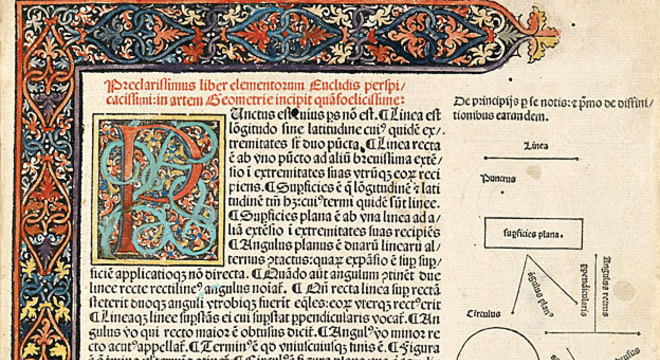 Preclarissimus liber elementorum Euclidis perspi-
cacissimi: in artem Geometrie incipit quãfoelicissime:
Punctus est cuius ps nõ est. ¶ Linea est
lõgitudo sine latitudine cui⁹ quidẽ ex-
tremitates sũt duo pũcta. ¶ Linea recta
ẽ ab vno pũcto ad aliũ breuissima extẽ-
sio ĩ extremitates suas vtrũqꝫ eoꝝ reci
piens. ¶ Supficies ẽ q̃ lõgitudinẽ ⁊ lati
tudinẽ tm̃ hꝫ: cui⁹ termi quidẽ sũt linee.
¶ Supficies plana ẽ ab vna linea ad a-
liã extẽsio ĩ extremitates suas recipiẽs
¶ Angulus planus ẽ duarũ linearũ al-
ternus ꝯtactus: quaꝝ expãsio ẽ sup sup-
ficiẽ applicatioqꝫ nõ directa. ¶ Quãdo aũt angulum ꝯtinẽt due
linee recte rectiline⁹ angulus noiat̃. ¶ Qñ recta linea sup rectã
steterit duoqꝫ anguli vtrobiqꝫ fuerit eq̃les: eoꝝ vterqꝫ rect⁹ erit
¶ Lineaqꝫ linee supstãs ei cui supstat ppendicularis vocat̃. ¶ An
gulus vo qui recto maioꝛ ẽ obtusus dicit̃. ¶ Angul⁹ vo minoꝛ re
cto acut⁹ appellat̃. ¶ Termin⁹ ẽ qd̃ vniuscuiusqꝫ finis ẽ. ¶ Figura
De principijs p se notis: ⁊ pmo de diffini-
tionibus earundem.
Linea
Punctus
supficies plana.
ãgulus plan⁹
ppendicularis
Angulus rectus
Circulus